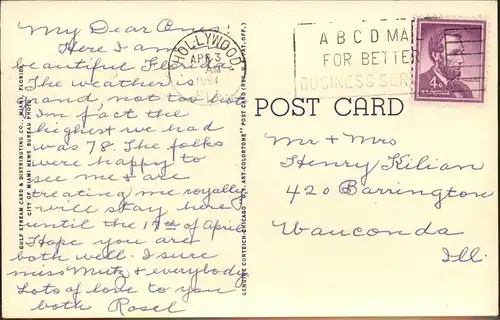 My Dear Ones!
Here I am
beautiful Florida.
The weather is
grand, not too hot
In fact the
highest we had
was 78. The folks
were happy to
see me & are
treating me royally
will stay here
until the 17th of April
Hope you are
both well. I sure
miss Mutz & everybody
Lots of love to you
both Rosel
GULF STREAM CARD & DISTRIBUTING CO., MIAMI, FLORIDA
CITY OF MIAMI NEWS BUREAU PHOTO
GENUINE CURTEICH-CHICAGO "C.T. ART-COLORTONE" POST CARD (REG. U.S. PAT. OFF.)
HOLLYWOOD
APR 3
AM
1964
FLA.
A B C D MA
FOR BETTER
BUSINESS SER
4¢
POST CARD
Mr + Mrs
Henry Kilian
420 Barrington
Wauconda
Ill.